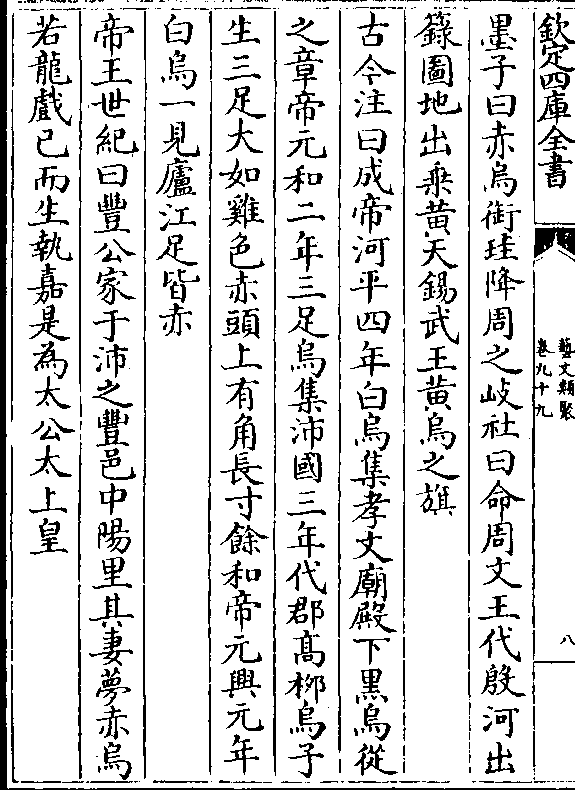 欽定四庫全書
藝文類聚
卷九十九
八
墨子曰赤烏銜珪降周之岐社曰命周文王代殷河出
籙圖地出乗黄天錫武王黄烏之旗
古今注曰成帝河平四年白烏集孝文廟殿下黒烏從
之章帝元和二年三足烏集沛國三年代郡髙栁烏子
生三足大如雞色赤頭上有角長寸餘和帝元興元年
白烏一見廬江足皆赤
帝王世紀曰豐公家于沛之豐邑中陽里其妻夢赤烏
若龍戲已而生執嘉是為太公太上皇